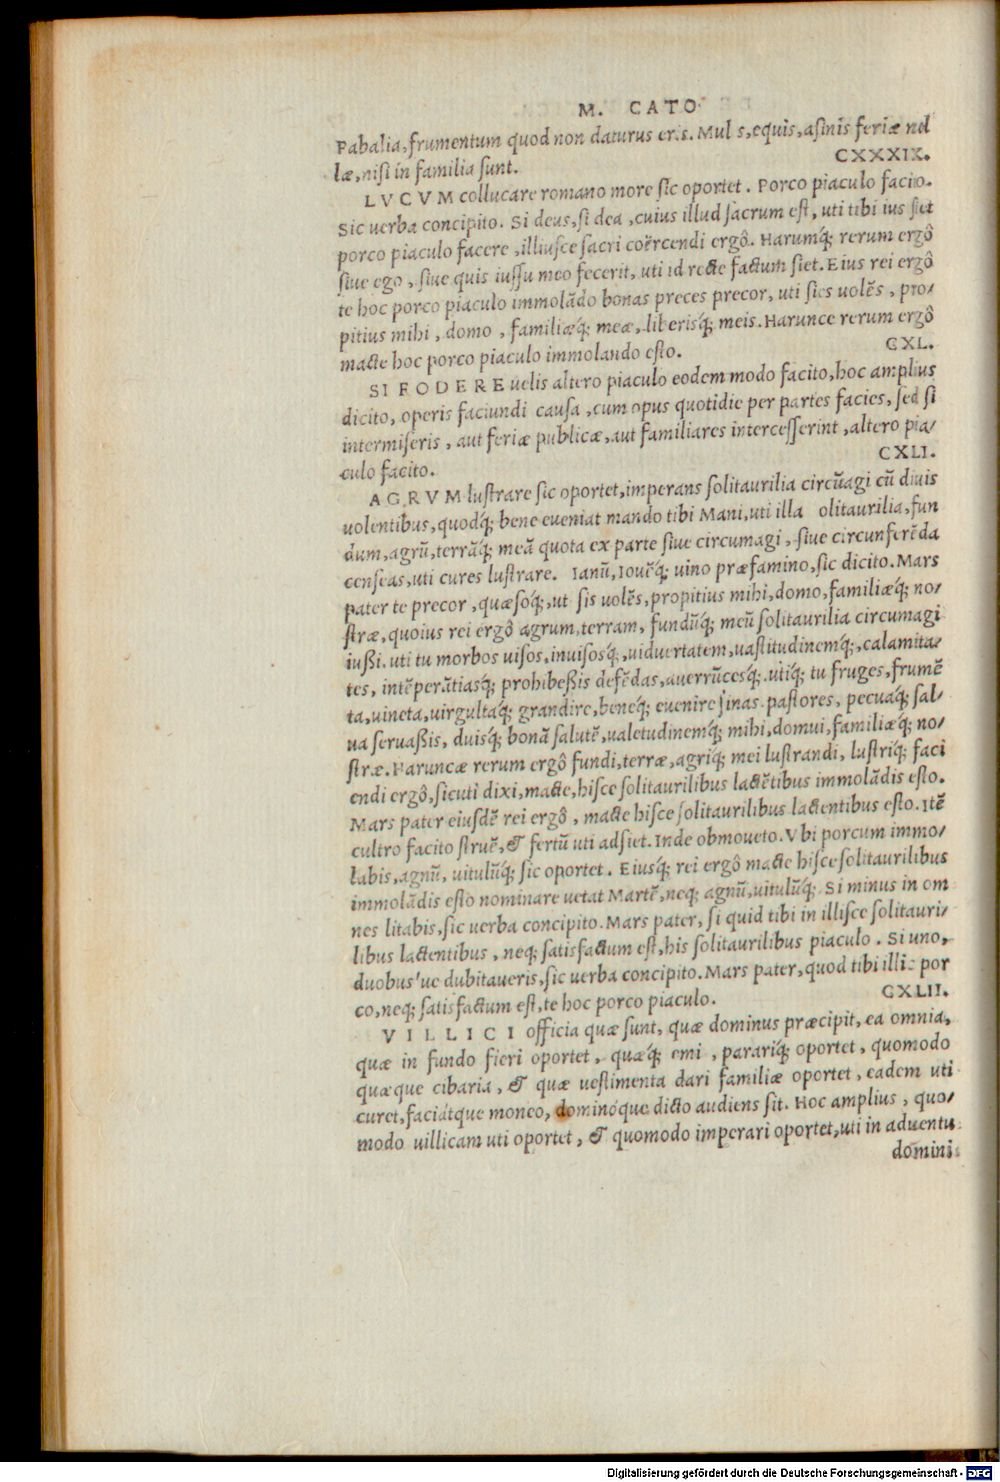 M. CATO
Fabalia, frumentum quod non daturus eris. Mul s, equis, asinis feriæ nul
læ, nisi in familia sunt.
CXXXIX.
LVCVM collucare romano more sic oportet. Porco piaculo facito.
Sic uerba concipito. Si deus, si dea, cuius illud sacrum est, uti tibi ius siet
porco piaculo facere, illiusce sacri coërcendi ergô. Harumq́; rerum ergô
siue ego, siue quis iussu meo fecerit, uti id recte factum siet. Eius rei ergô
te hoc porco piaculo immolādo bonas preces precor, uti sies uolēs, pro/
pitius mihi, domo, familiæq́; meæ, liberisq́; meis. Harunce rerum ergô
macte hoc porco piaculo immolando esto.
CXL.
SI FODERE uelis altero piaculo eodem modo facito, hoc amplius
dicito, operis faciundi causa, cum opus quotidie per partes facies, sed si
intermiseris, aut feriæ publicæ, aut familiares intercesserint, altero pia/
culo facito.
CXLI.
AGRVM lustrare sic oportet, imperans solitaurilia circūagi cū diuis
uolentibus, quodq́; bene eueniat mando tibi Mani, uti illa olitaurilia, fun
dum, agrū, terrāq́; meā quota ex parte siue circumagi, siue circunferēda
censeas, uti cures lustrare. Ianū, Iouēq́; uino præfamino, sic dicito. Mars
pater te precor, quæsoq́;, ut sis uolēs, propitius mihi, domo, familiæq́; no/
stræ, quoius rei ergô agrum, terram, fundūq́; meū solitaurilia circumagi
iußi. uti tu morbos uisos, inuisosq́;, uiduertatem, uastitudinemq́;, calamita/
tes, intēperātiasq́; prohibeßis defēdas, auerrūcesq́;. utiq́; tu fruges, frumē
ta, uineta, uirgultaq́; grandire, beneq́; euenire sinas. pastores, pecuaq́; sal/
ua seruaßis, duisq́; bonā salutē, ualetudinemq́; mihi, domui, familiæq́; no/
stræ. Haruncæ rerum ergô fundi, terræ, agriq́; mei lustrandi, lustriq́; faci
endi ergô, sicuti dixi, macte, hisce solitaurilibus lactētibus immolādis esto.
Mars pater eiusdē rei ergô, macte hisce solitaurilibus lactentibus esto. Itē
cultro facito struē, & fertū uti adsiet. Inde obmoueto. Vbi porcum immo/
labis, agnū, uitulūq́; sic oportet. Eiusq́; rei ergô macte hisce solitaurilibus
immolādis esto nominare uetat Martē, neq; agnū, uitulūq́;. Si minus in om
nes litabis, sic uerba concipito. Mars pater, si quid tibi in illisce solitauri/
libus lactentibus, neq; satisfactum est, his solitaurilibus piaculo. Si uno,
duobus'ue dubitaueris, sic uerba concipito. Mars pater, quod tibi illic por
co, neq; satisfactum est, te hoc porco piaculo.
CXLII.
VILLICI officia quæ sunt, quæ dominus præcipit, ea omnia,
quæ in fundo fieri oportet, quæq́; emi, parariq́; oportet, quomodo
quæque cibaria, & quæ uestimenta dari familiæ oportet, eadem uti
curet, faciátque moneo, dominóque dicto audiens sit. Hoc amplius, quo/
modo uillicam uti oportet, & quomodo imperari oportet, uti in aduentu
domini
Digitalisierung gefördert durch die Deutsche Forschungsgemeinschaft - DFG